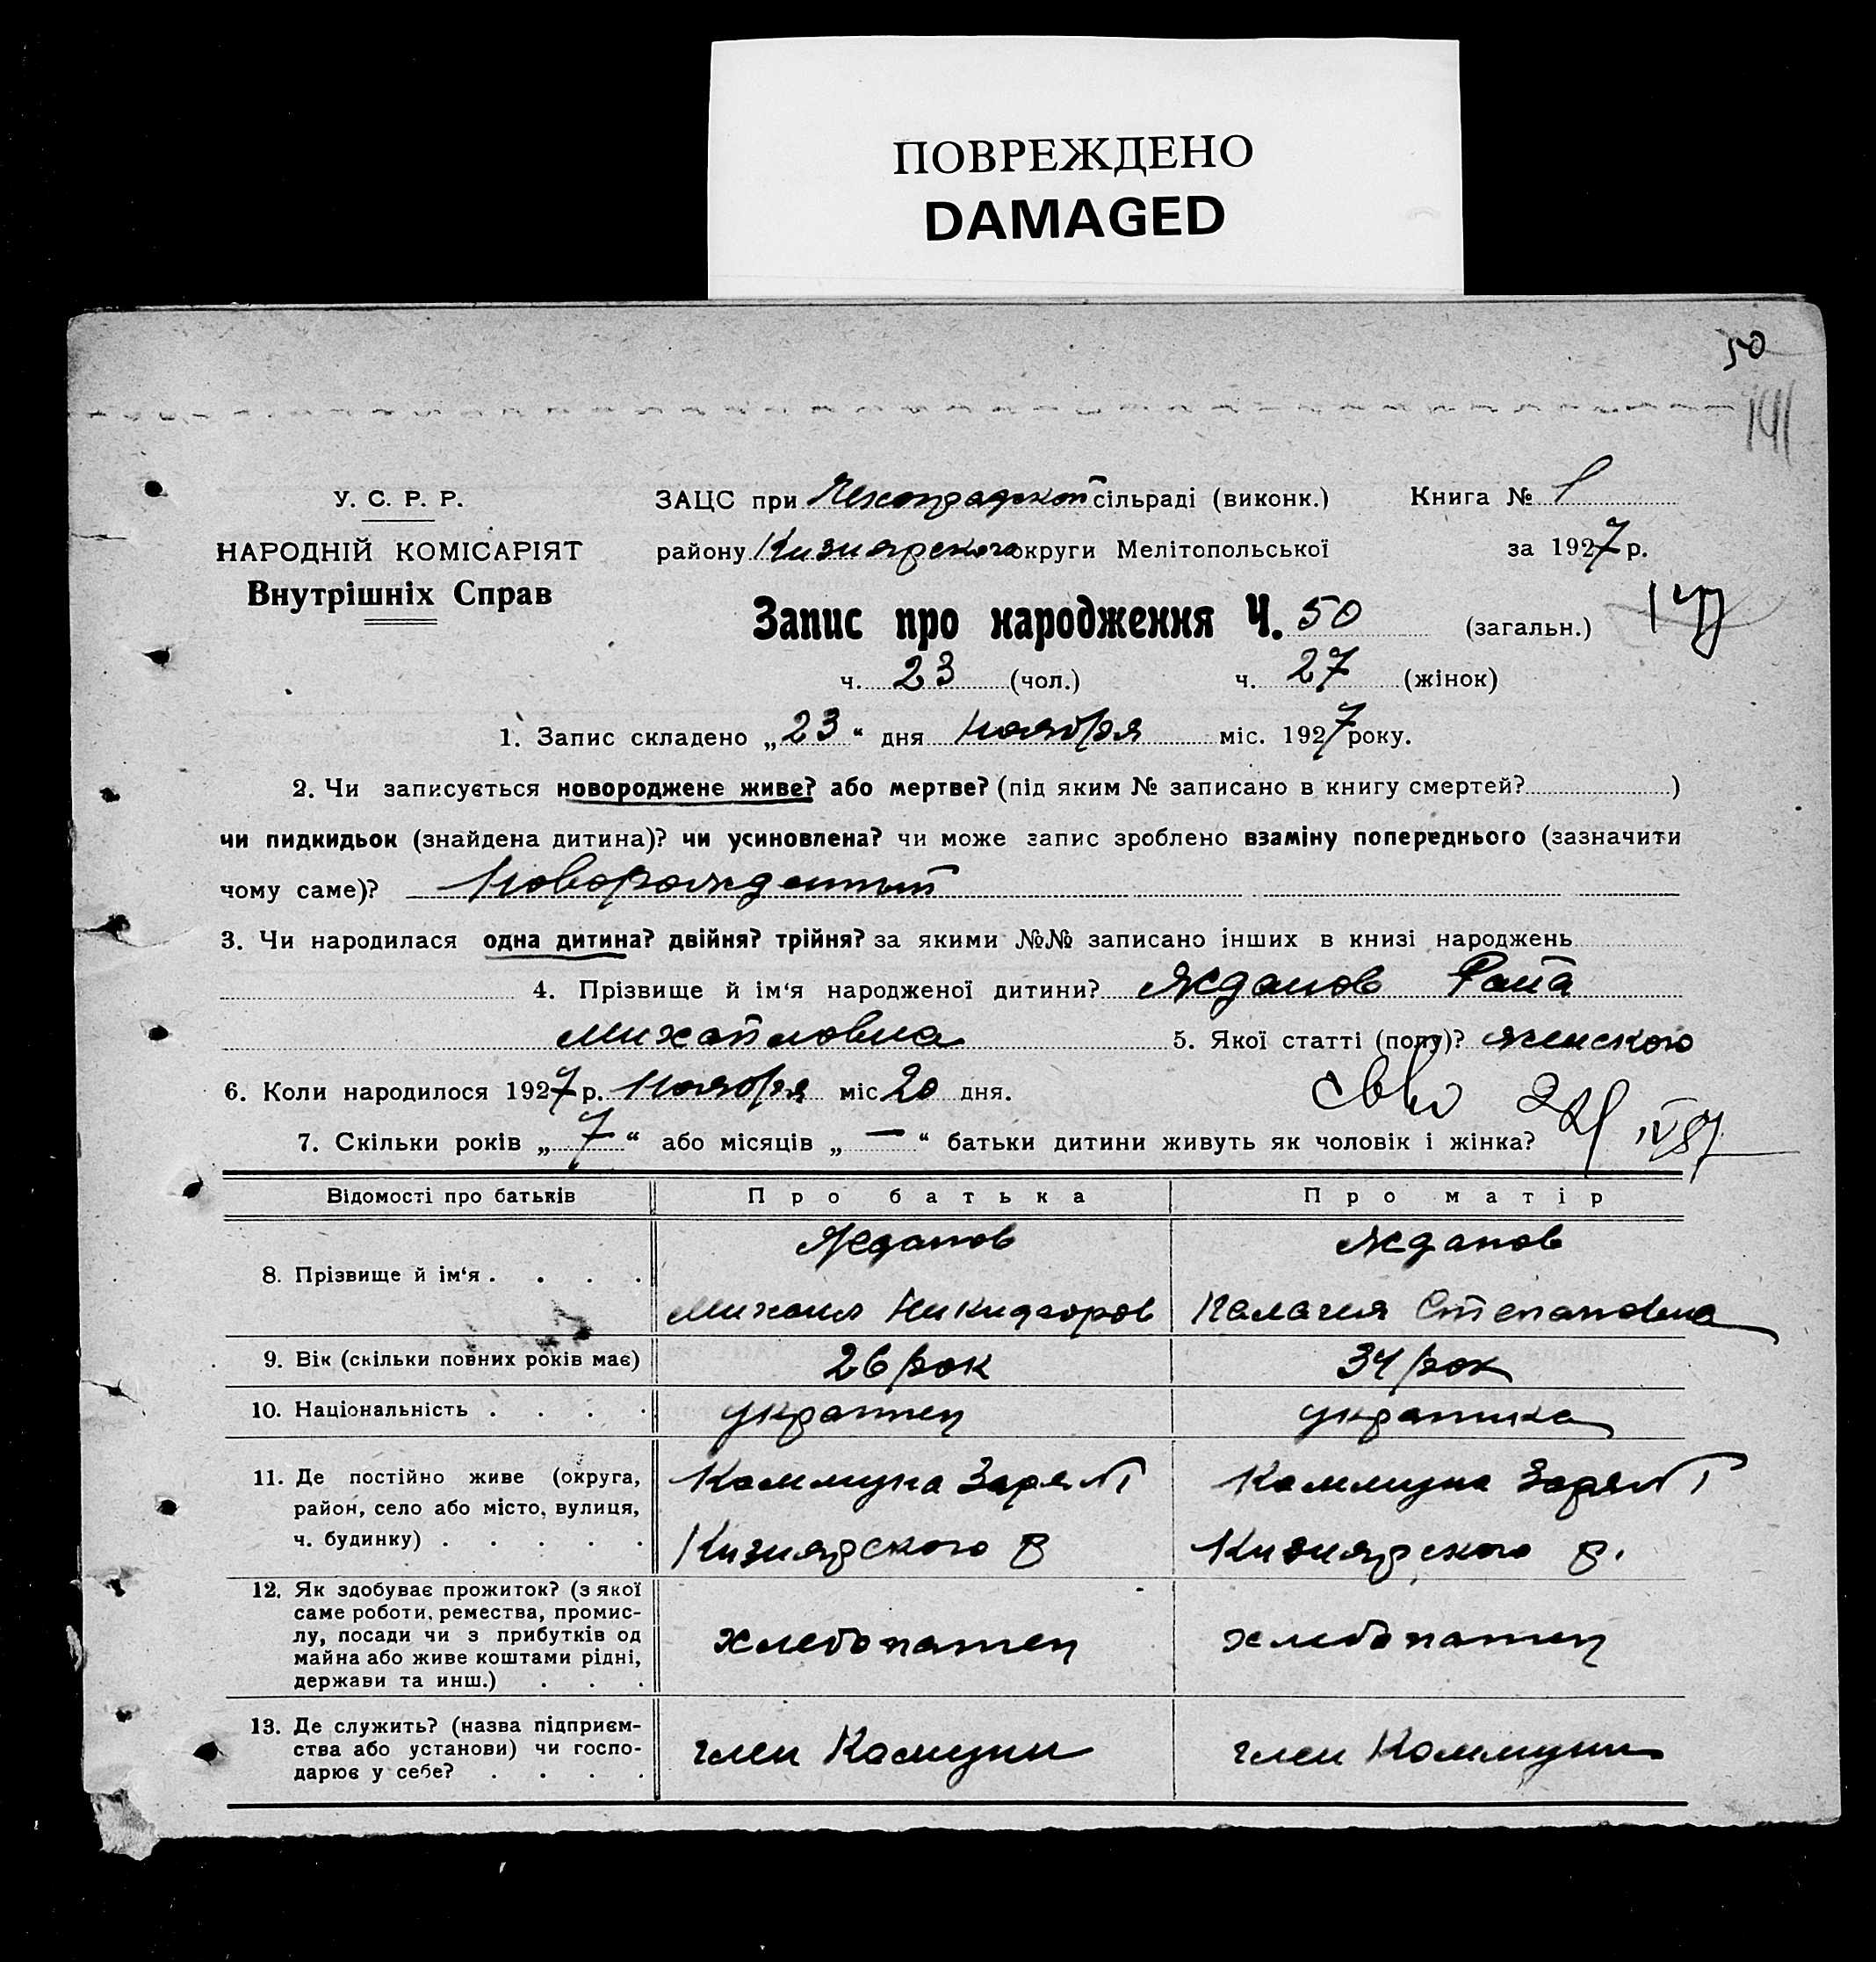 ПОВРЕЖДЕНО
DAMAGED
50
141
У. С. Р. Р.
НАРОДНІЙ КОМІСАРІЯТ
Внутрішніх Справ
ЗАЦС при сільраді (виконк.) Книга № 1
району Кизиярского округи Мелітопольської за 1927 р.
Запис про народження Ч. 50 (загальн.)
ч. 23 (чол.) ч. 27 (жінок)
1. Запис складено „23“ дня ноября міс. 1927 року.
2. Чи записується новороджене живе? або мертве? (під яким № записано в книгу смертей? )
чи пидкидьок (знайдена дитина)? чи усиновлена? чи може запис зроблено взаміну попереднього (зазначити
чому саме)? Новорожденный
3. Чи народилася одна дитина? двійня? трійня? за якими №№ записано інших в книзі народжень
4. Прізвище й ім‘я народженої дитини? Жданов Раїа
Михайловна 5. Якої статті (полу)? женского
6. Коли народилося 1927 р. Ноября міс 20 дня.
7. Скільки років „7“ або місяців „—“ батьки дитини живуть як чоловік і жінка?
Відомості про батьків Про батька Про матір
8. Прізвище й ім‘я . . . . Жданов Жданов
Михаил Никидзоров Палагия Степановна
9. Вік (скільки повних років має) 26 рок 34 рок
10. Національність . . . . украинец украинка
11. Де постійно живе (округа, район, село або місто, вулиця, ч. будинку) . . . . .
Коммуна Заря №1 Коммуна Заря №1
Кизиярского р Кизиярского р.
12. Як здобуває прожиток? (з якої
саме роботи, ремества, промис-
лу, посади чи з прибутків од
майна або живе коштами рідні,
держави та инш.) . . .
хлебопашец хлебопашец
13. Де служить? (назва підприєм-
ства або установи) чи госпо-
дарює у себе? . . . .
член Комуни член Коммуни